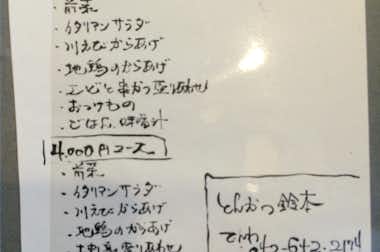 ・前菜
・イタリアンサラダ
・川えびからあげ
・地鶏のからあげ
・エビと串かつ盛りあわせ
・おつけもの
・ごはん、味噌汁
4,000円コース
・前菜
・イタリアンサラダ
・川えびからあげ
・地鶏のからあげ
盛りあわせ
とんかつ 鈴木
でんわ
042-642-2174